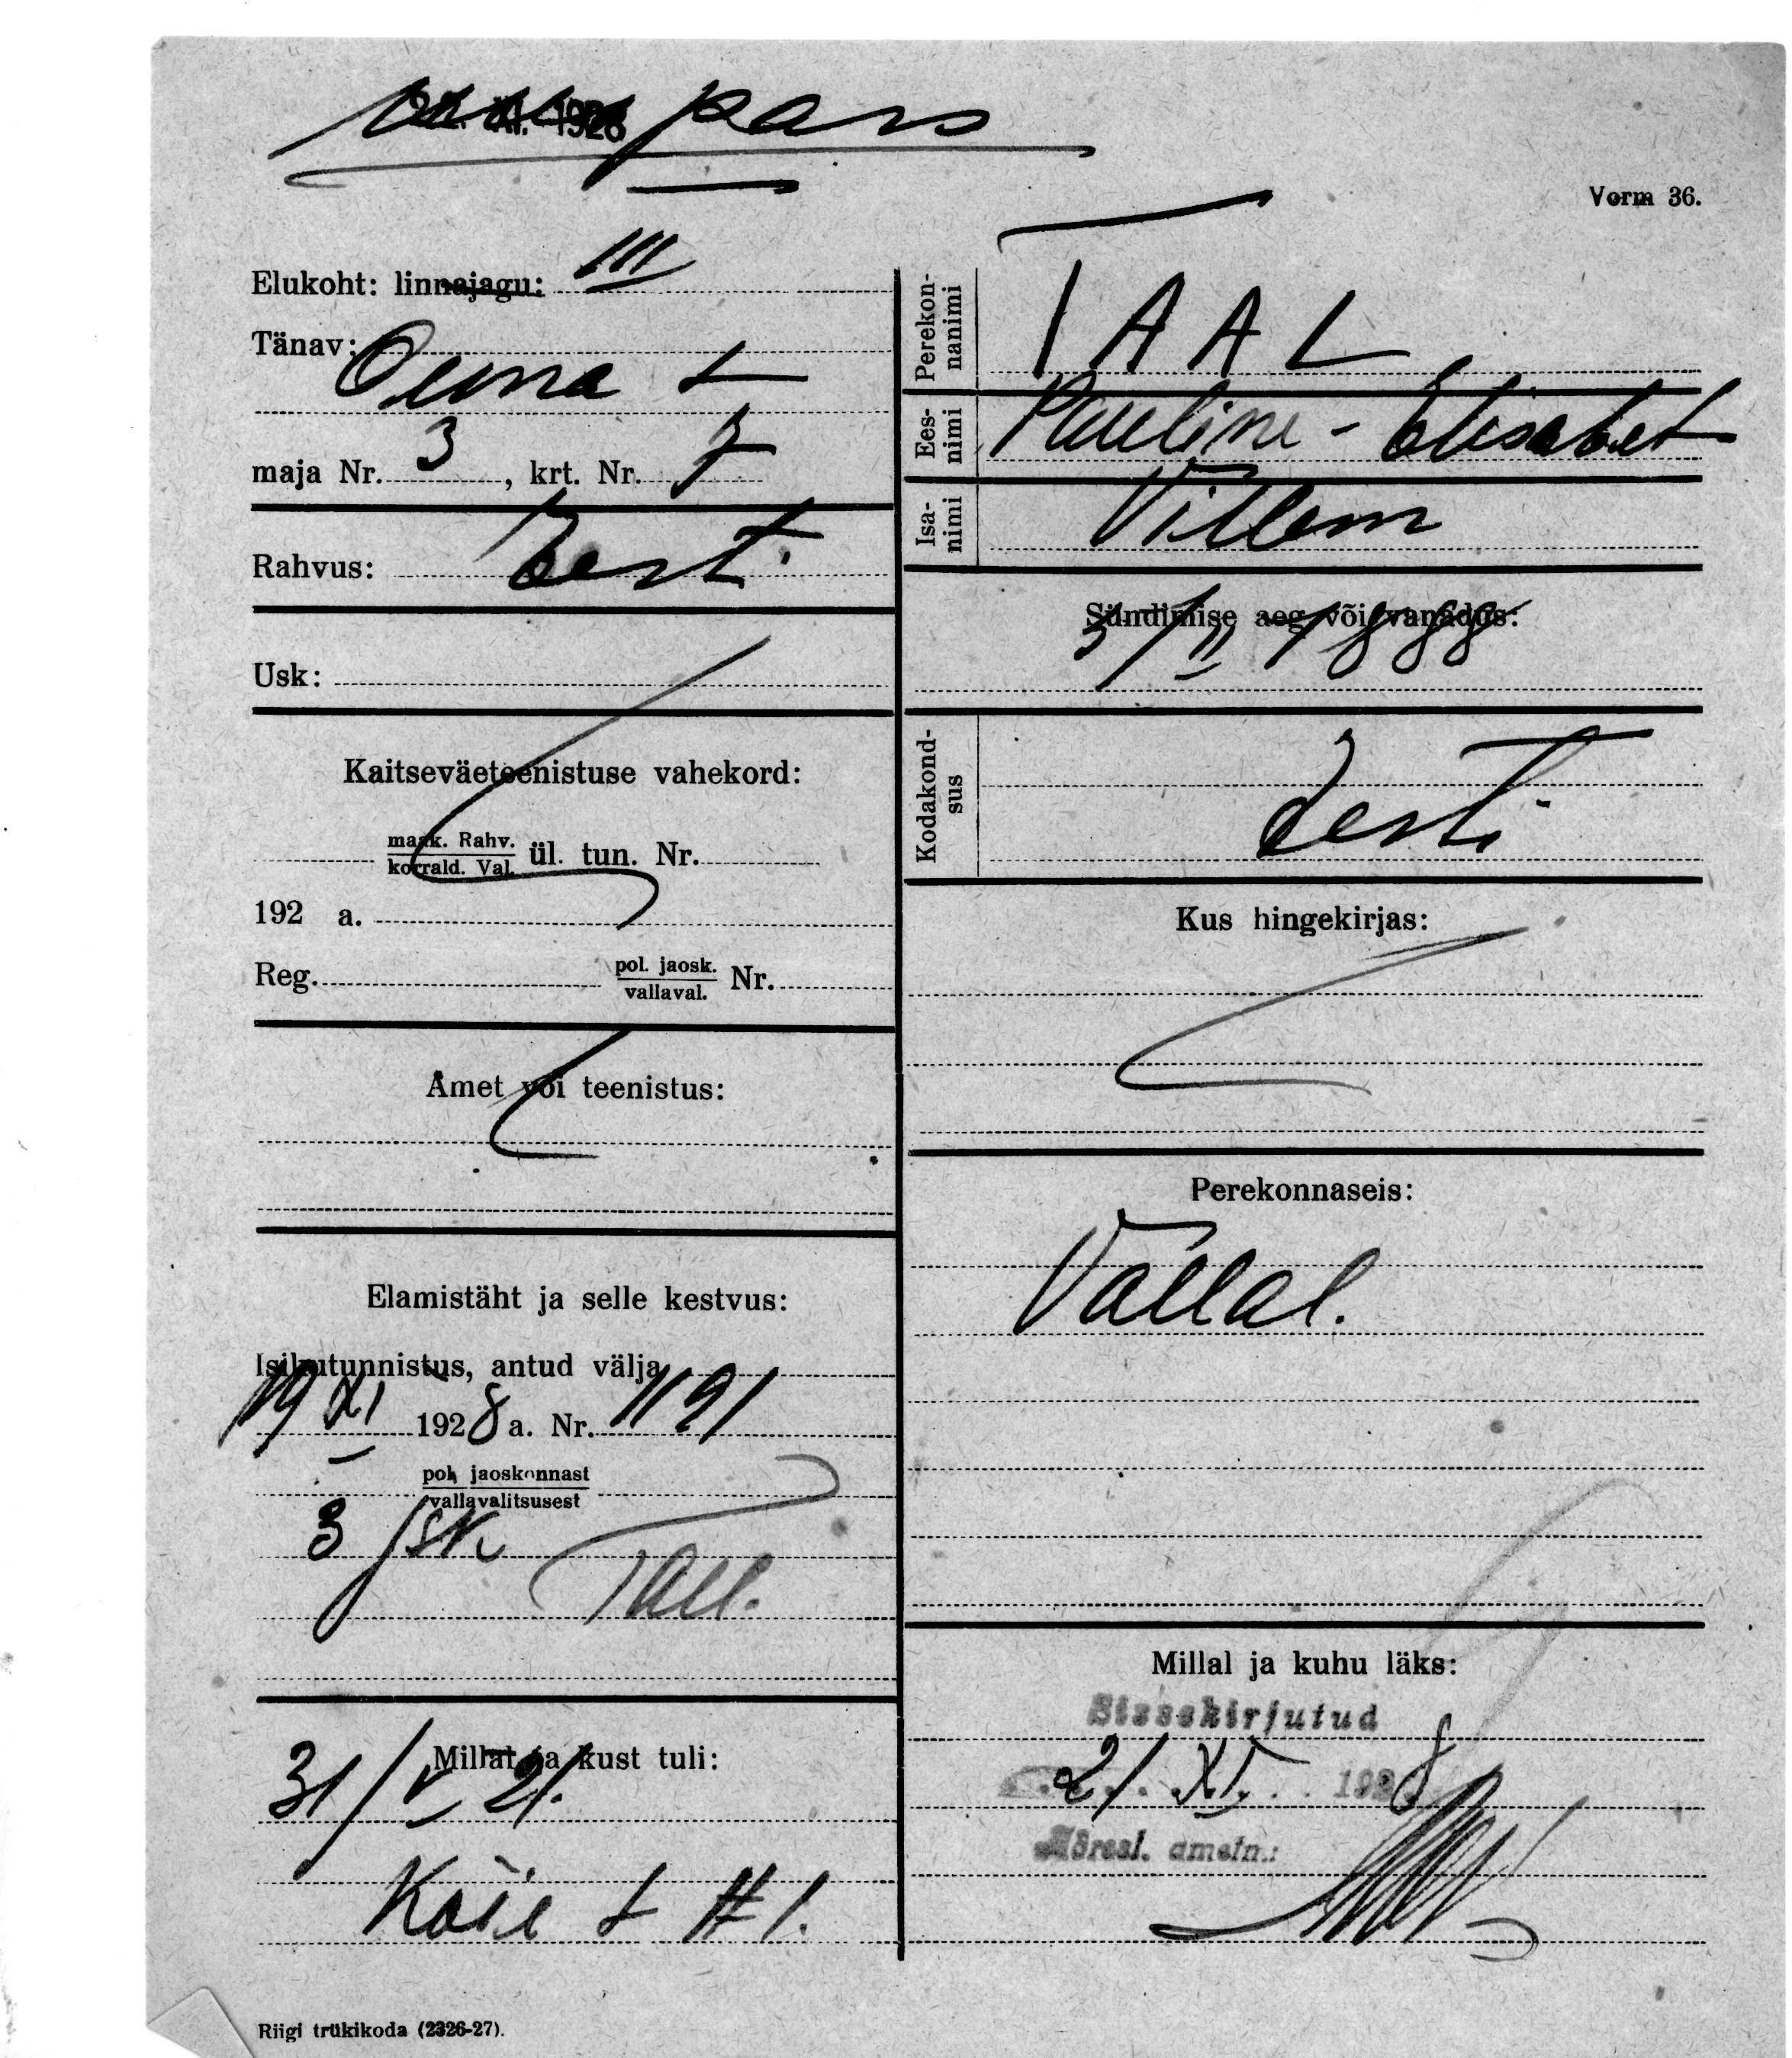 pass
Vorm 36.
Elukoht: linnajagu: III
Tänav:
maja Nr. 3, krt. Nr. 7
Rahvus: Eesti
Usk:
Kaitseväeteenistuse vahekord:
maak. Rahv.
korrald. Val. ül. tun. Nr.
192 a.
Reg. pol. jaosk.
vallaval. Nr.
Amet või teenistus:
Elamistäht ja selle kestvus:
Isikutunnistus, antud välja
19 XI 1928 a. Nr. 1191
pol. jaoskonnast
vallavalitsusest
3 jsk
Tall.
Millal ja kust tuli:
31/V 21.
Perekon-
nanimi
TAAL
Ees-
nimi
Pauline - Elisabet
Isa-
nimi
Villem
Sündimise aeg või vanadus:
3/II 1888
Kodakond-
sus
Eesti
Kus hingekirjas:
Perekonnaseis:
Vallal.
Millal ja kuhu läks:
Sissekirjutud
21. XI. 1928
ametn.:
Riigi trükikoda (2326-27).